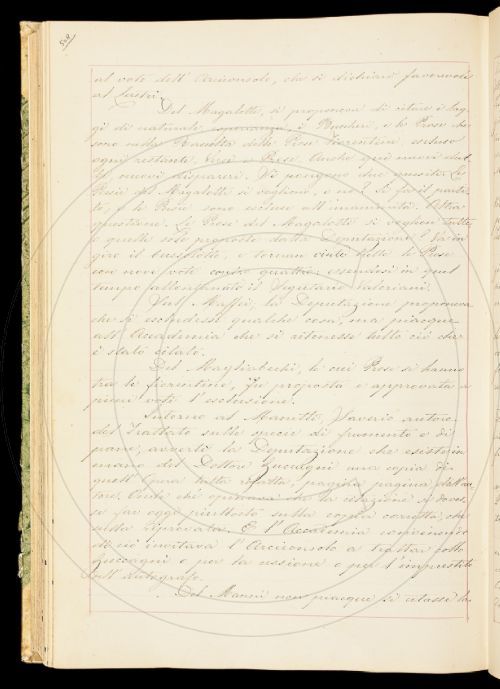 509
al voto dell' Arciconsolo, che si dichiarò favorevole
al Lastri.
Del Magalotti, si proponeva di citare i Sag-
gi di naturale esperienza, i Buccheri, e le Prose che
sono nella Raccolta delle Prose fiorentine, escluso
ogni restante, Versi e Prose. Anche qui nuovi
nuovi dispareri. Si pongono due quesiti. Le
Poesie del Magalotti si vogliono, o no? Si fa il parti-
to, e le Poesie sono escluse all' unanimità. Altra
questione. Le Prose del Magalotti si voglion tutte,
o quelle sole proposte dalla Deputazione? Va in
giro il bossolotto, e tornan vinte tutte le Prose
con nove voti contro quattro; essendosi in quel
tempo allontanato il Segretario Valeriani.
Del Maffei, la Deputazione proponeva
che si escludesse qualche cosa, ma piacque
all' Accademia che si ritenesse tutto ciò che
è stato citato.
Del Magliabechi, le cui Prose si hanno
tra le fiorentine, fu proposta e approvata a
pieni voti l' esclusione.
Intorno al Manetti, Saverio autore
del Trattato sulle specie di frumento e di
pane, avvertì la Deputazione che esiste in
mano del Dottor Zuccagni una copia di
quell' opera tutta rifatta, pagina pagina, dall' au-
tore. Onde che opinava che la citazione si doves-
se far oggi piuttosto sulla copia corretta, che
sulla riprovata. E l' Accademia convenendo
di ciò invitava l' Arciconsolo a trattar collo
Zuccagni o per la cessione o per l' imprestito
dell' autografo.
Del Manni non piacque si citasse la